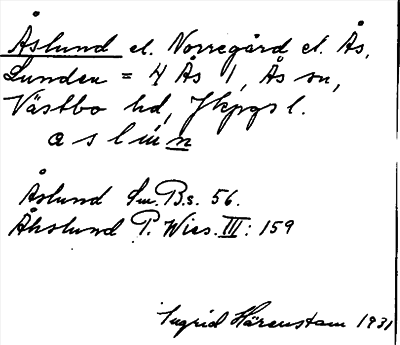 Åslund el. Norregård el. Ås,
Lunden = 4 Ås 1, Ås sn,
Västbo hd, Jkpgs l.
a s l u n
Åslund Sm. Bs. 56.
Åhslund P. Wies. III: 159
Ingrid Härenstam 1931